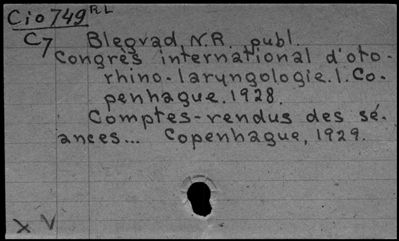 Cio 749 R.L
C7 Blegvad, N.R. publ.
Congrès international d'oto-
rhino-laryngologie. 1. Co-
penhague. 1928.
Comptes-rendus des sé-
ances... Copenhague, 1929.
X V